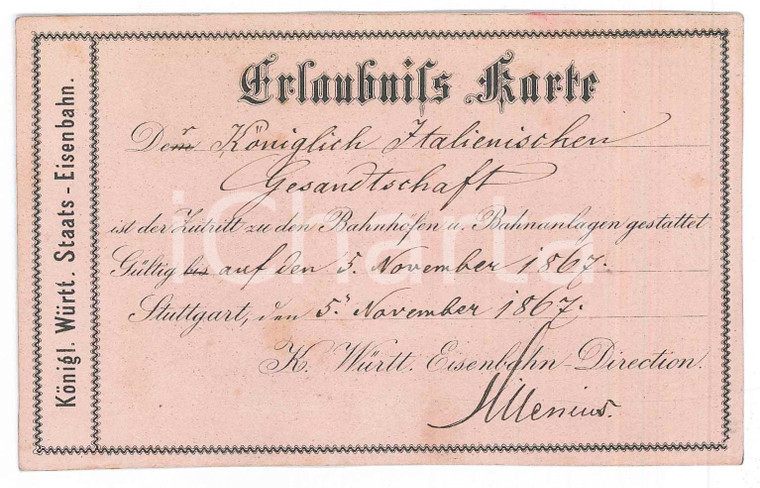 Königl. Württ. Staats-Eisenbahn.
Erlaubniſs Karte
Der Königlich Italienischen
Gesandtschaft
ist der Zutritt zu den Bahnhöfen u. Bahnanlagen gestattet
Gültig bis auf den 5. November 1867.
Stuttgart, den 5. November 1867.
K. Württ. Eisenbahn-Direction.
iCharta